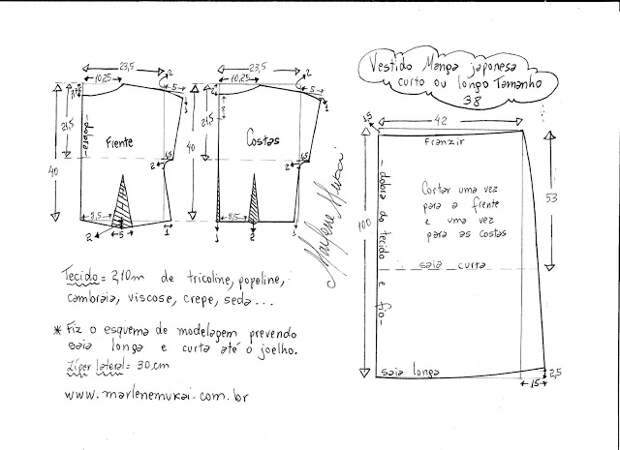 Vestido Manga japonesa
curto ou longo Tamanho
38
23,5
2
10,25
5
21,5
40
-dobra-
Frente
2
1,5
8,5
2
5
1
23,5
2
10,25
5
21,5
40
Costas
2
1,5
8,5
1
2
1
Marlene Mukai
1,5
42
Franzir
100
53
- dobra do tecido e fio -
Cortar uma vez
para a frente
e uma vez
para as costas
saia curta
saia longa
15
2,5
Tecido = 2,10m de tricoline, popeline,
cambraia, viscose, crepe, seda...
* Fiz o esquema de modelagem prevendo
saia longa e curta até o joelho.
Zíper lateral = 30 cm
www.marlenemukai.com.br